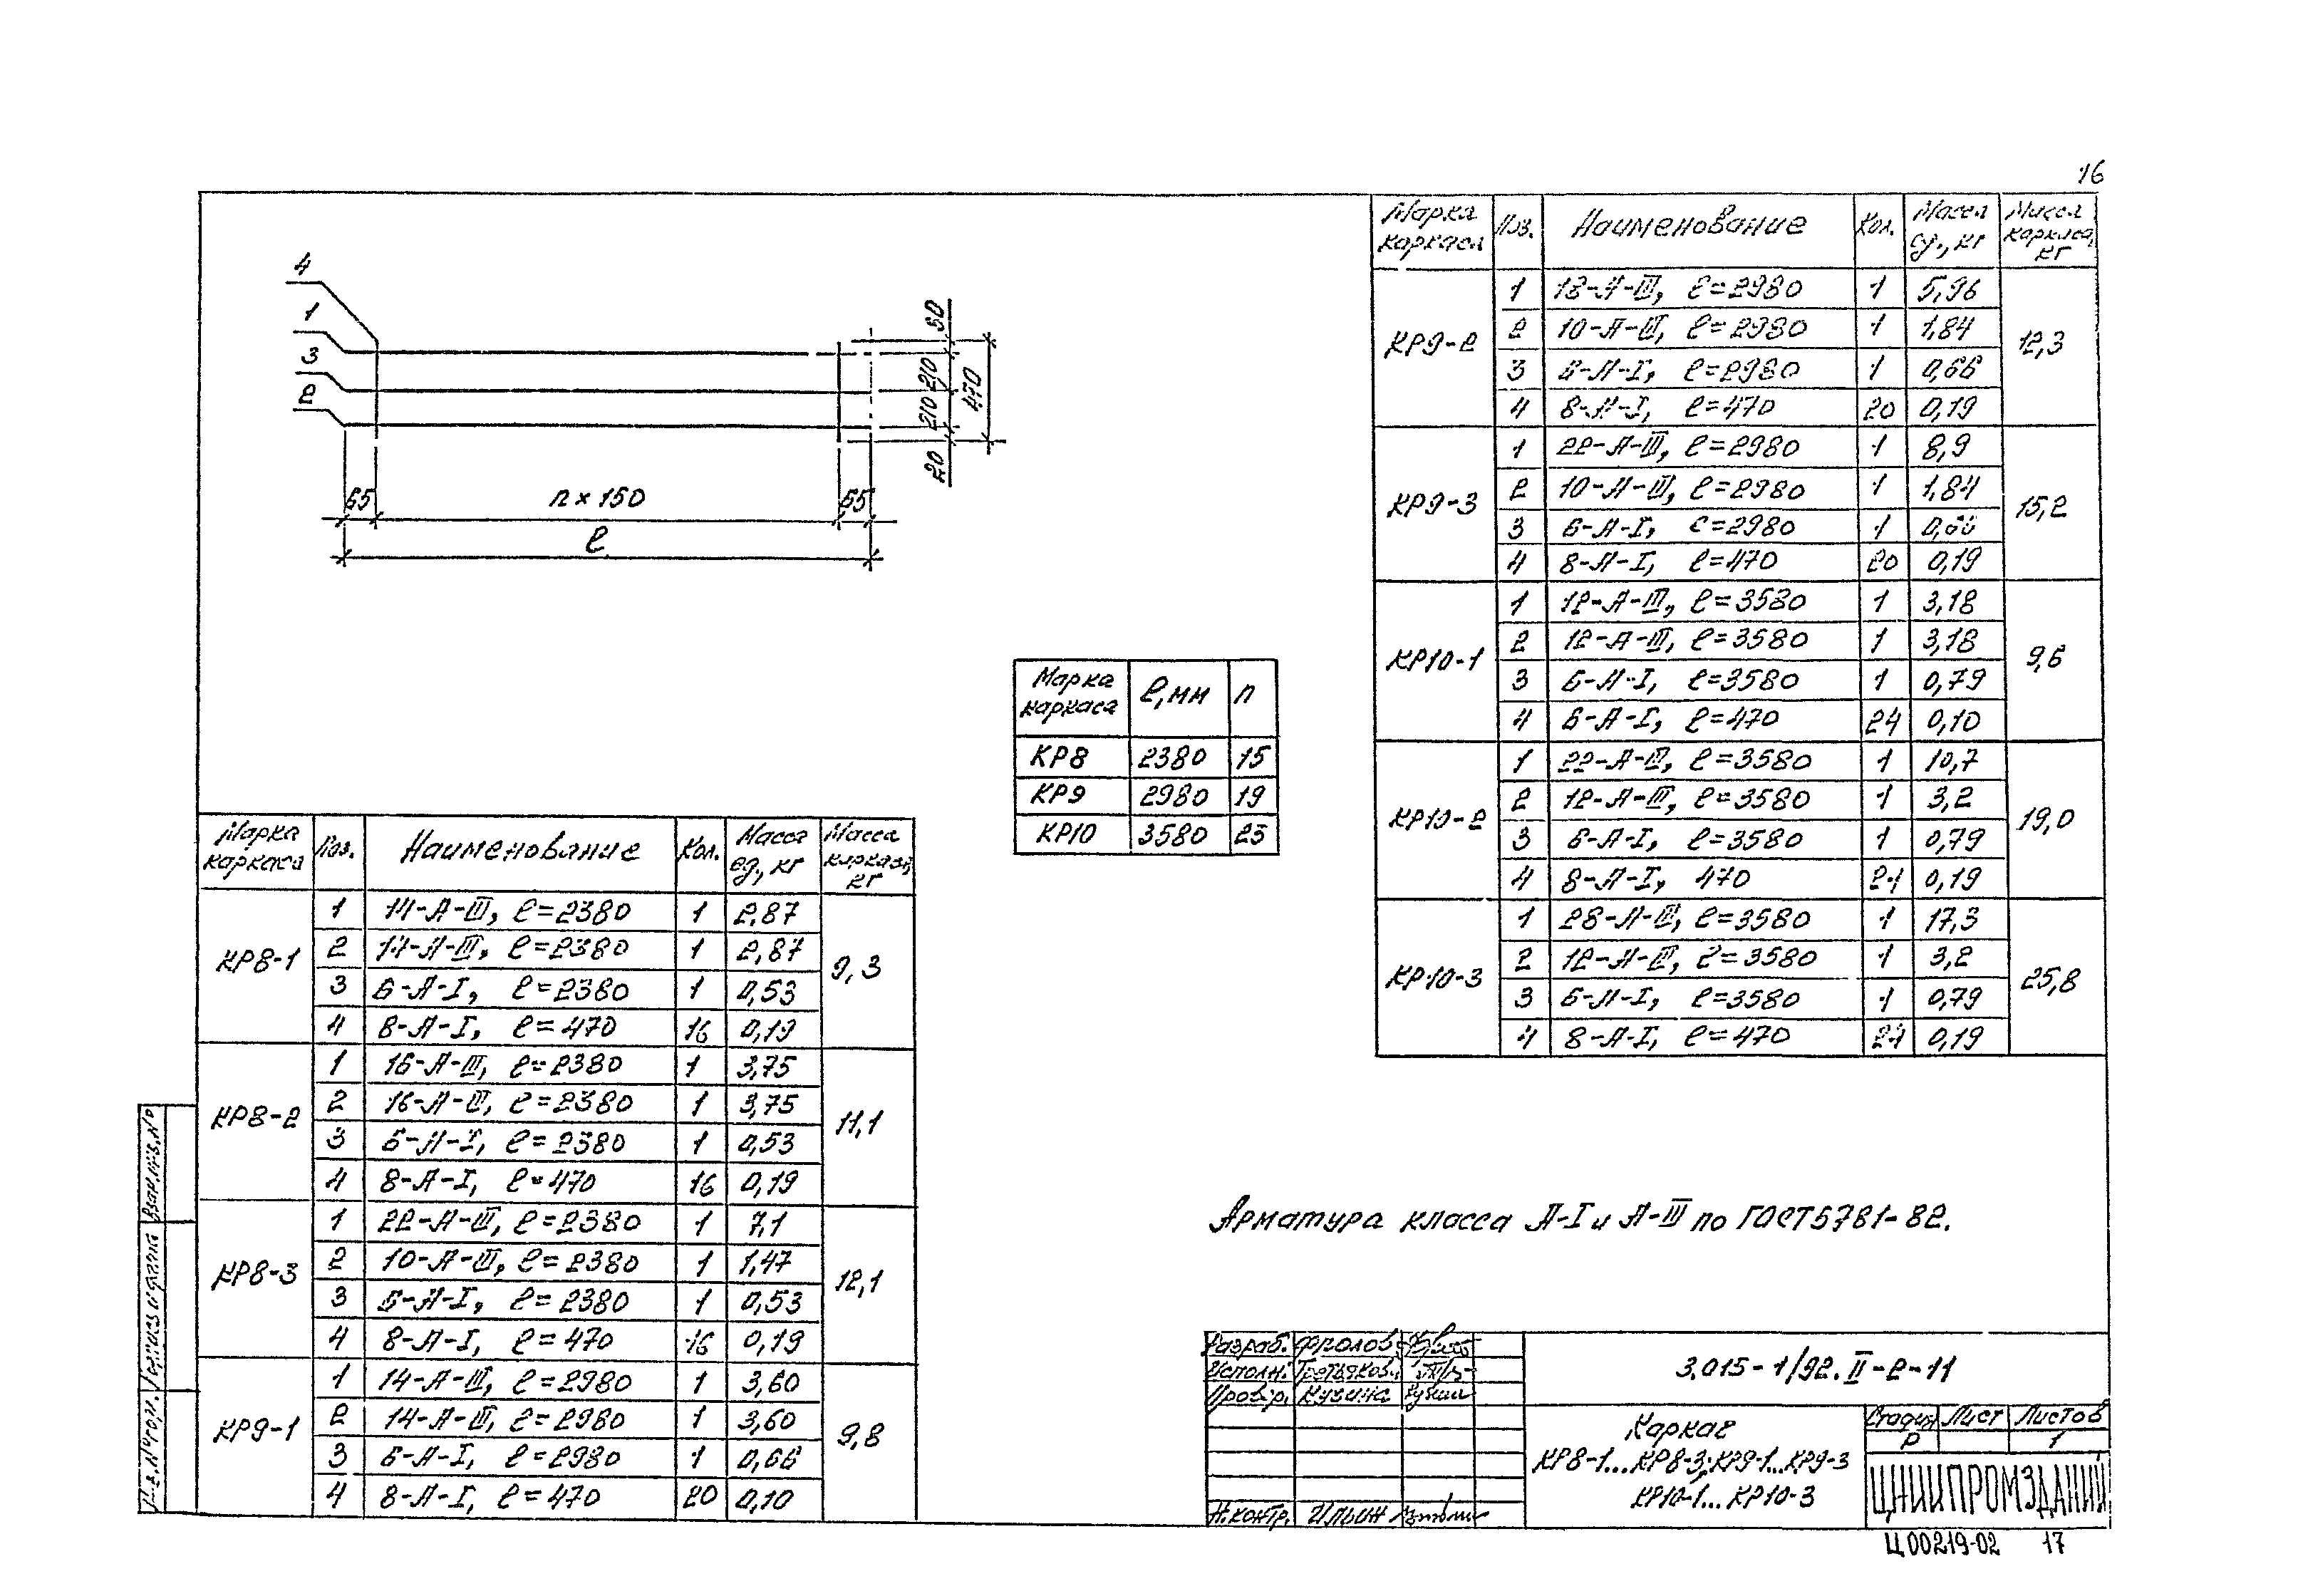 16
4
1
3
2
50
210
210
20
470
65
n×150
65
ℓ
Марка каркаса | ℓ, мм | n
КР8 | 2380 | 15
КР9 | 2980 | 19
КР10 | 3580 | 23
Марка каркаса | Поз. | Наименование | Кол. | Масса ед., кг | Масса каркаса, кг
КР8-1 | 1 | 14-А-III, ℓ=2380 | 1 | 2,87 | 9,3
2 | 14-А-III, ℓ=2380 | 1 | 2,87
3 | 6-А-I, ℓ=2380 | 1 | 0,53
4 | 8-А-I, ℓ=470 | 16 | 0,19
КР8-2 | 1 | 16-А-III, ℓ=2380 | 1 | 3,75 | 11,1
2 | 16-А-III, ℓ=2380 | 1 | 3,75
3 | 6-А-I, ℓ=2380 | 1 | 0,53
4 | 8-А-I, ℓ=470 | 16 | 0,19
КР8-3 | 1 | 22-А-III, ℓ=2380 | 1 | 7,1 | 12,1
2 | 10-А-III, ℓ=2380 | 1 | 1,47
3 | 6-А-I, ℓ=2380 | 1 | 0,53
4 | 8-А-I, ℓ=470 | 16 | 0,19
КР9-1 | 1 | 14-А-III, ℓ=2980 | 1 | 3,60 | 9,8
2 | 14-А-III, ℓ=2980 | 1 | 3,60
3 | 6-А-I, ℓ=2980 | 1 | 0,66
4 | 8-А-I, ℓ=470 | 20 | 0,10
Марка каркаса | Поз. | Наименование | Кол. | Масса ед., кг | Масса каркаса, кг
КР9-2 | 1 | 18-А-III, ℓ=2980 | 1 | 5,96 | 12,3
2 | 10-А-III, ℓ=2980 | 1 | 1,84
3 | 6-А-I, ℓ=2980 | 1 | 0,66
4 | 8-А-I, ℓ=470 | 20 | 0,19
КР9-3 | 1 | 22-А-III, ℓ=2980 | 1 | 8,9 | 15,2
2 | 10-А-III, ℓ=2980 | 1 | 1,84
3 | 6-А-I, ℓ=2980 | 1 | 0,66
4 | 8-А-I, ℓ=470 | 20 | 0,19
КР10-1 | 1 | 12-А-III, ℓ=3580 | 1 | 3,18 | 9,6
2 | 12-А-III, ℓ=3580 | 1 | 3,18
3 | 6-А-I, ℓ=3580 | 1 | 0,79
4 | 6-А-I, ℓ=470 | 24 | 0,10
КР10-2 | 1 | 22-А-III, ℓ=3580 | 1 | 10,7 | 19,0
2 | 12-А-III, ℓ=3580 | 1 | 3,2
3 | 6-А-I, ℓ=3580 | 1 | 0,79
4 | 8-А-I, 470 | 24 | 0,19
КР10-3 | 1 | 28-А-III, ℓ=3580 | 1 | 17,3 | 25,8
2 | 12-А-III, ℓ=3580 | 1 | 3,2
3 | 6-А-I, ℓ=3580 | 1 | 0,79
4 | 8-А-I, ℓ=470 | 24 | 0,19
Арматура класса А-I и А-III по ГОСТ 5781-82.
Взам. инв. №
Подпись и дата
Инв. № подл.
Разраб. Фролов
Исполн. Третьяков
Провер. Кузина
Н.контр. Ильин
3.015-1/92.II-2-11
Каркас
КР8-1...КР8-3; КР9-1...КР9-3
КР10-1...КР10-3
Стадия | Лист | Листов
Р | | 1
ЦНИИПРОМЗДАНИЙ
Ц00219-02 17